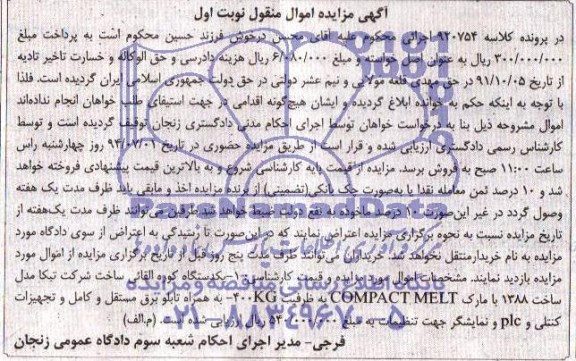 آگهی مزایده اموال منقول نوبت اول
در پرونده کلاسه ۹۲۰۷۵۴ اجرائی محکوم علیه آقای محسن درخوش فرزند حسین محکوم است به پرداخت مبلغ
۳۰۰/۰۰۰/۰۰۰ ریال به عنوان اصل خواسته و مبلغ ۶/۰۸۰/۰۰۰ ریال هزینه دادرسی و حق الوکاله و خسارت تاخیر تادیه
از تاریخ ۹۱/۱۰/۰۵ در حق مهدی قلعه مولایی و نیم عشر دولتی در حق دولت جمهوری اسلامی ایران گردیده است. فلذا
با توجه به اینکه حکم به خوانده ابلاغ گردیده و ایشان هیچ‌گونه اقدامی در جهت استیفای طلب خواهان انجام نداده‌اند
اموال مشروحه ذیل بنا به درخواست خواهان توسط اجرای احکام مدنی دادگستری زنجان توقیف گردیده است و توسط
کارشناس رسمی دادگستری ارزیابی شده و قرار است از طریق مزایده حضوری در تاریخ ۹۴/۰۷/۰۱ روز چهارشنبه راس
ساعت ۱۱:۰۰ صبح به فروش برسد. مزایده از قیمت پایه کارشناسی شروع و به بالاترین قیمت پیشنهادی فروخته خواهد
شد و ۱۰ درصد ثمن معامله نقدا یا به‌صورت چک بانکی (تضمینی) از برنده مزایده اخذ و مابقی باید ظرف مدت یک هفته
وصول گردد در غیر این‌صورت ۱۰ درصد ماخوذه به نفع دولت ضبط خواهد شد. طرفین می‌توانند ظرف مدت یک‌هفته از
تاریخ مزایده نسبت به نحوه برگزاری مزایده اعتراض نمایند که در این‌صورت تا رسیدگی به اعتراض از سوی دادگاه مورد
مزایده به نام خریدار منتقل نخواهد شد. خریداران می‌توانند ظرف مدت پنج روز قبل از تاریخ برگزاری مزایده از اموال مورد
مزایده بازدید نمایند. مشخصات اموال مورد مزایده و قیمت کارشناسی: ۱-یکدستگاه کوره القائی ساخت شرکت تبکا مدل
ساخت ۱۳۸۸ با مارک COMPACT MELT به ظرفیت ۴۰۰KG- به همراه تابلو برق مستقل و کامل و تجهیزات
کنترلی و plc و نمایشگر جهت تنظیمات به مبلغ ریال ارزیابی شده است. (م.الف)
فرجی- مدیر اجرای احکام شعبه سوم دادگاه عمومی زنجان
ParsNamadData
پایگاه اطلاع رسانی مناقصه و مزایده
۰۲۱-۸۸۳۴۹۶۷۰-۵